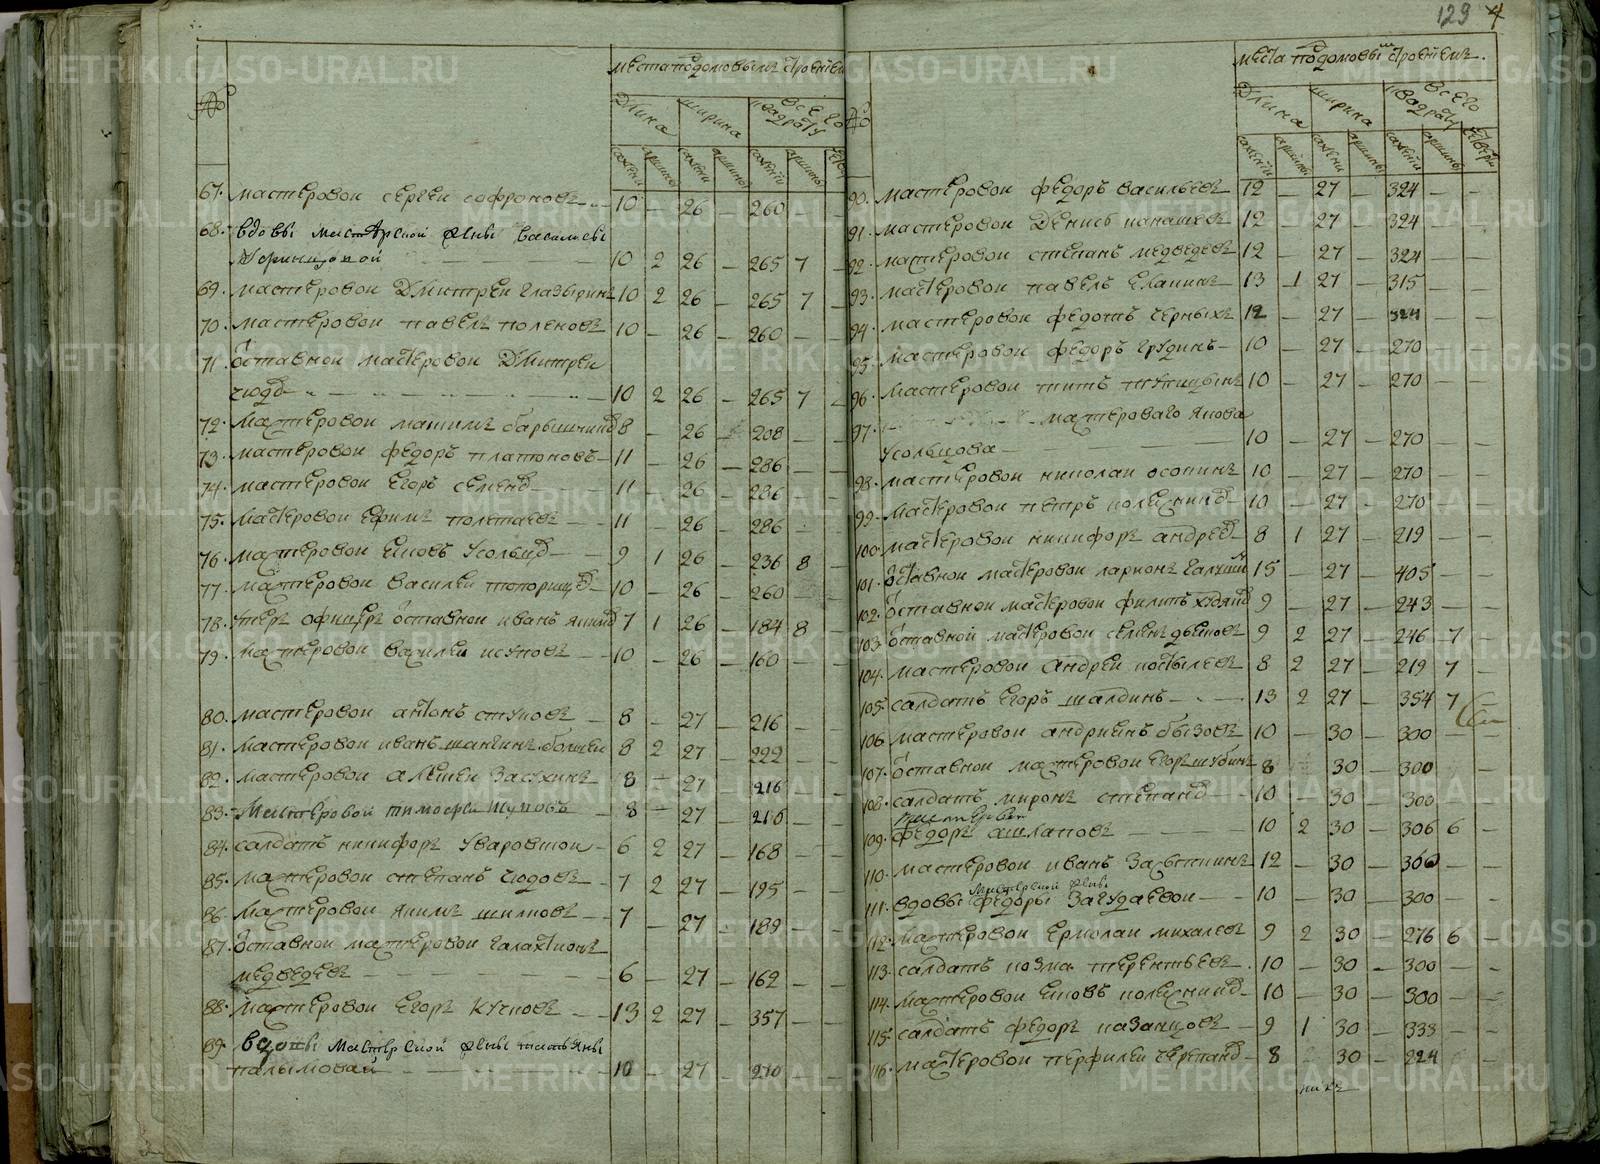 129 4
№ места подомовымъ строениемъ
Длина ширина всего квадрату
сажени аршины сажени аршины сажени аршины
67. мастеровои сергеи софроновъ 10 — 26 — 260 — —
68. вдовы мастерской жены васильевы
10 2 26 — 265 7 —
69. мастеровои Дмитреи глазыринъ 10 2 26 — 265 7 —
70. мастеровои павелъ поленовъ 10 — 26 — 260 — —
71. отставнои мастеровои Дмитреи
чюд 10 2 26 — 265 7 —
72. мастеровои максимъ барышник 8 — 26 — 208 — —
73. мастеровои федоръ платоновъ 11 — 26 — 286 — —
74. мастеровои Егоръ семенв 11 — 26 — 286 — —
75. мастеровои Ефимъ полетаевъ 11 — 26 — 286 — —
76. мастеровои Яковъ Усольцв 9 1 26 — 236 8 —
77. мастеровои василеи топорищв 10 — 26 — 260 — —
78. Унтеръ офицеръ отставнои иванъ 7 1 26 — 184 8 —
79. мастеровои василеи исуповъ 10 — 26 — 160 — —
80. мастеровои антонъ ступовъ 8 — 27 — 216 — —
81. мастеровои иванъ шангинъ болшеи 8 2 27 — 222 — —
82. мастеровои алексеи засухинъ 8 — 27 — 216 — —
83. мастеровой тимофеи шуповъ 8 — 27 — 216 — —
84. салдатъ никифоръ Уваровскои 6 2 27 — 168 — —
85. мастеровои степанъ чюдовъ 7 2 27 — 195 — —
86. мастеровои якимъ шилковъ 7 — 27 — 189 — —
87. отставнои мастеровои галахтионъ
медведевъ 6 — 27 — 162 — —
88. мастеровои Егоръ Кучковъ 13 2 27 — 357 — —
89. вдовы мастерской жены татьяны
палымовай 10 — 27 — 270 — —
№ места подомовымъ строениемъ.
Длина ширина всего квадрату
сажени аршины сажени аршины сажени аршины четверти
90. мастеровои федоръ васильевъ 12 — 27 — 324 — —
91. мастеровои Денисъ панашевъ 12 — 27 — 324 — —
92. мастеровои степанъ медведевъ 12 — 27 — 324 — —
93. мастеровои павелъ Елкинъ 13 1 27 — 315 — —
94. мастеровои федотъ черныхъ 12 — 27 — 324 — —
95. мастеровои федоръ грудинъ 10 — 27 — 270 — —
96. мастеровои титъ тупицынъ 10 — 27 — 270 — —
97. мастероваго якова
Усольцова 10 — 27 — 270 — —
98. мастеровои николаи осокинъ 10 — 27 — 270 — —
99. мастеровои петръ 10 — 27 — 270 — —
100. мастеровои никифоръ андреев 8 1 27 — 219 — —
101. отставнои мастеровои ларионъ галкин 15 — 27 — 405 — —
102. отставнои мастеровои филипъ худяк 9 — 27 — 243 — —
103. отставной мастеровои семенъ дьяковъ 9 2 27 — 246 7 —
104. мастеровои андреи костылевъ 8 2 27 — 219 7 —
105. салдатъ Егоръ шалдинъ 13 2 27 — 354 7
106. мастеровои андриянъ бызовъ 10 — 30 — 300 — —
107. отставнои мастеровои Егоръ шубинъ 8 30 — 300 — —
108. салдатъ миронъ степанв 10 — 30 — 300 — —
109. федоръ ашлаповъ 10 2 30 — 306 6 —
110. мастеровои иванъ 12 — 30 — 360 — —
мастерской жены
111. вдовы федоры Загудаевои 10 — 30 — 300 — —
112. мастеровои Ермолаи михалевъ 9 2 30 — 276 6 —
113. салдатъ козма терентьевъ 10 — 30 — 300 — —
114. мастеровои яковъ 10 — 30 — 300 — —
115. салдатъ федоръ казанцовъ 9 1 30 — 333 — —
116. мастеровои перфилеи черепанв 8 — 30 — 224 — —
METRIKI.GASO-URAL.RU